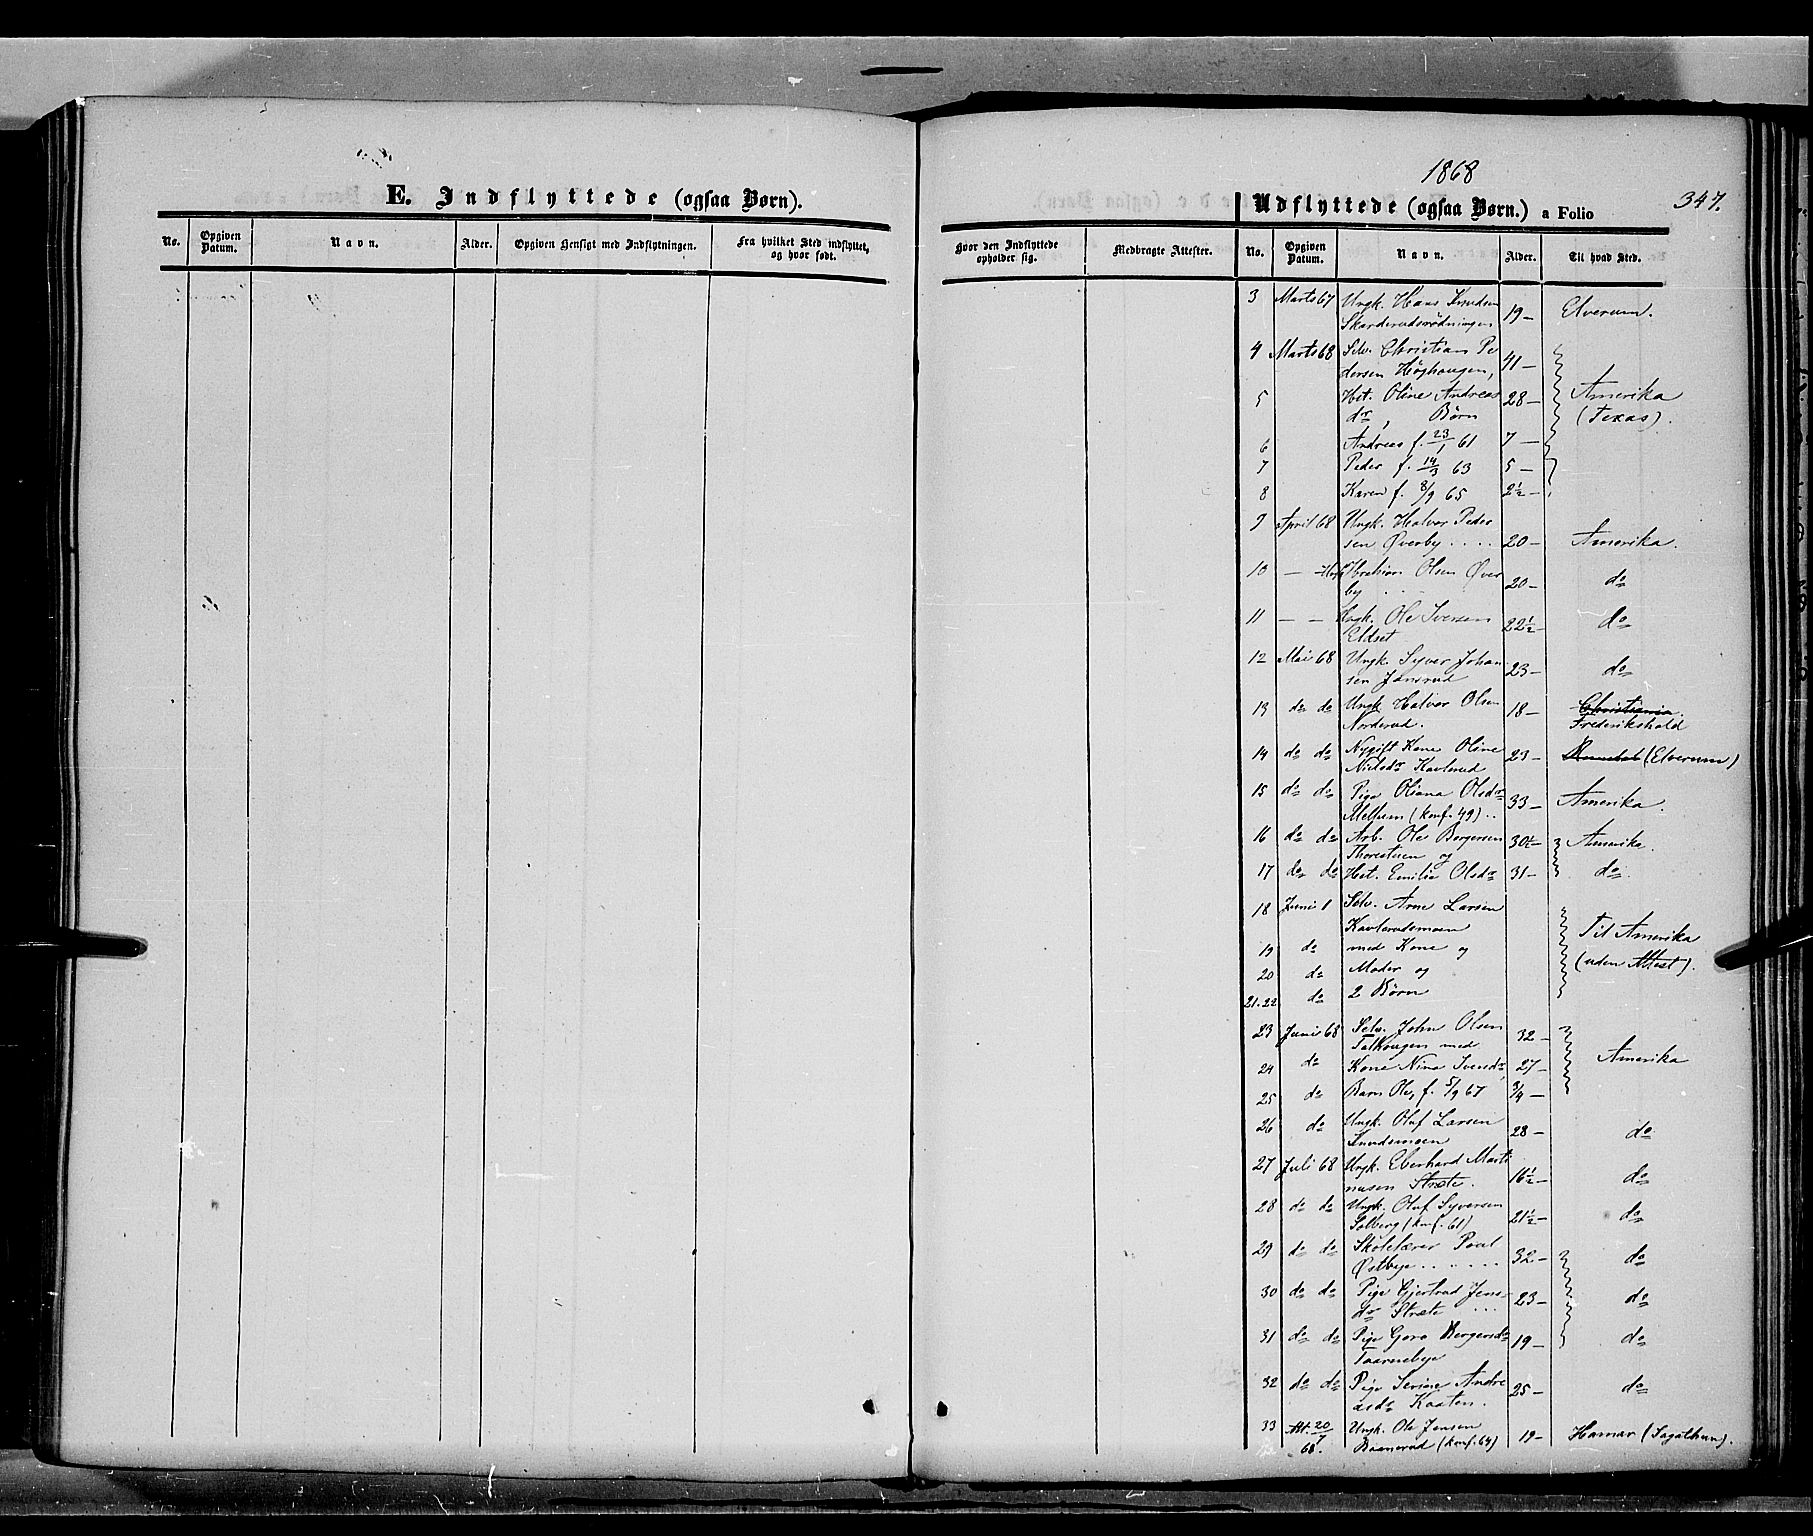 1868
347.
E. Indflyttede (ogsaa Børn).
Udflyttede (ogsaa Børn.) a Folio
No. Opgiven Datum. Navn. Alder. Opgiven Hensigt med Indflytningen. Fra hvilket Sted indflyttet, og hvor født.
Hvor den Indflyttede opholder sig. Medbragte Attester. No. Opgiven Datum. Navn. Alder. Til hvad Sted.
3 Marts 67 Ungk. Hans Knudsen
Skarderudsrødningen 19 – Elverum.
4 Marts 68 Selv. Christian Pe
dersen Høghaugen, 41 –
5 Hst. Oline Andreas 28 – Amerika
dr, Børn (Texas).
6 Andreas f. 23/1 61 7 –
7 Peder f. 14/3 63 5 –
8 Karen f. 8/9 65 2½ –
9 April 68 Ungk. Halvor Peder
sen Øverby . . . . 20 – Amerika.
10 – Abraham Olsen Øver
by . . 20 – do
11 – – Ungk. Ole Iversen
Eldset 22½ – do
12 Mai 68 Ungk. Syver Johan
sen Jonsrud 23 – do
13 do do Ungk Halvor Olsen 18 – Christiania.
Norderud. Frederikshald
14 do do Nygift Kone Oline
Nielsdr Kavlerud 23 – (Elverum)
15 do do Pige Oliana Olsdr
Melhem (konf. 49) .. 33 – Amerika.
16 do do Arb. Ole Bergersen 30½ – Amerika.
Thorestuen og
17 do do Hst. Emilie Olsdr 31 – do.
18 Juni 1 Selv. Arne Larsen
Kavlerudsmoen Til Amerika
19 do med Kone og
20 do Moder og (uden Attest).
21.22 do 2 Børn
23 Juni 68 Selv. John Olsen 32 –
med
24 do Kone Nina Iversdr, 27 – Amerika
25 do Barn Ole, f. 5/9 67 3/4 –
26 do Ungk. Oluf Larsen
Knudsmoen 28 – do
27 Juli 68 Ungk. Eberhard Marti
nusen Stræte. 16½ – do
28 do do Ungk. Oluf Syversen
Solberg (konf. 61) 21½ – do
29 do do Skolelærer Poul
Østbye . . . . . . 32 – do
30 do do Pige Gjertrud Jens
dr Stræte . . . 23 – do
31 do do Pige Goro Bergersdr
Taarnebye 19 – do
32 do do Pige Serine Andre
asdr Kaaten. 25 – do
33 Att. 20/7 68. Ungk. Ole Jensen
(konf. 64) 19 – Hamar (Sagathun).